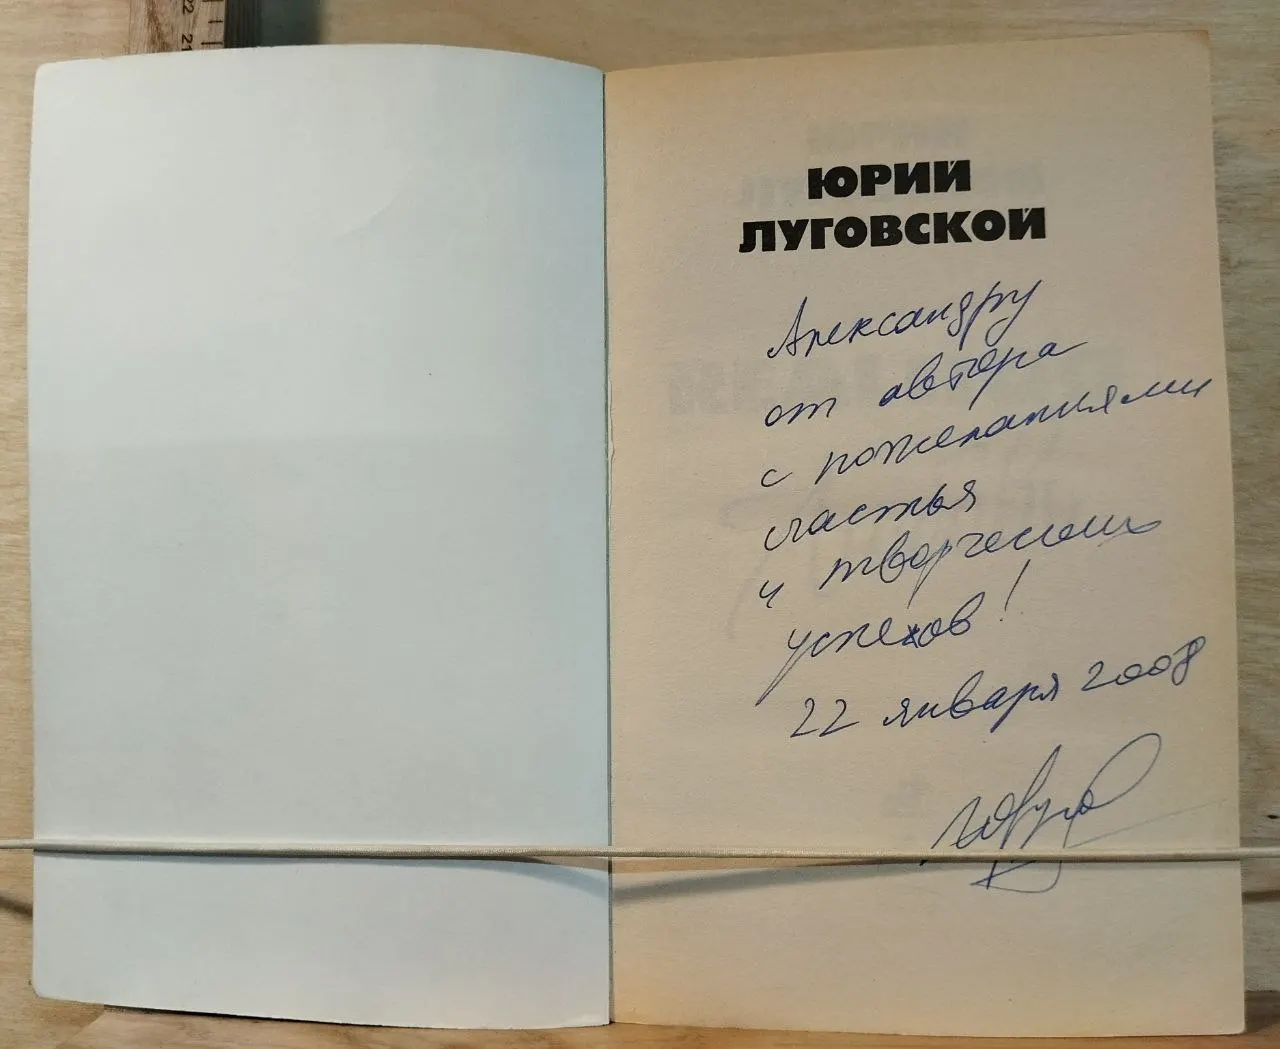 22
21
ЮРИЙ
ЛУГОВСКОЙ
Александру
от автора
с пожеланиями
счастья
и творческих
успехов!
22 января 2008